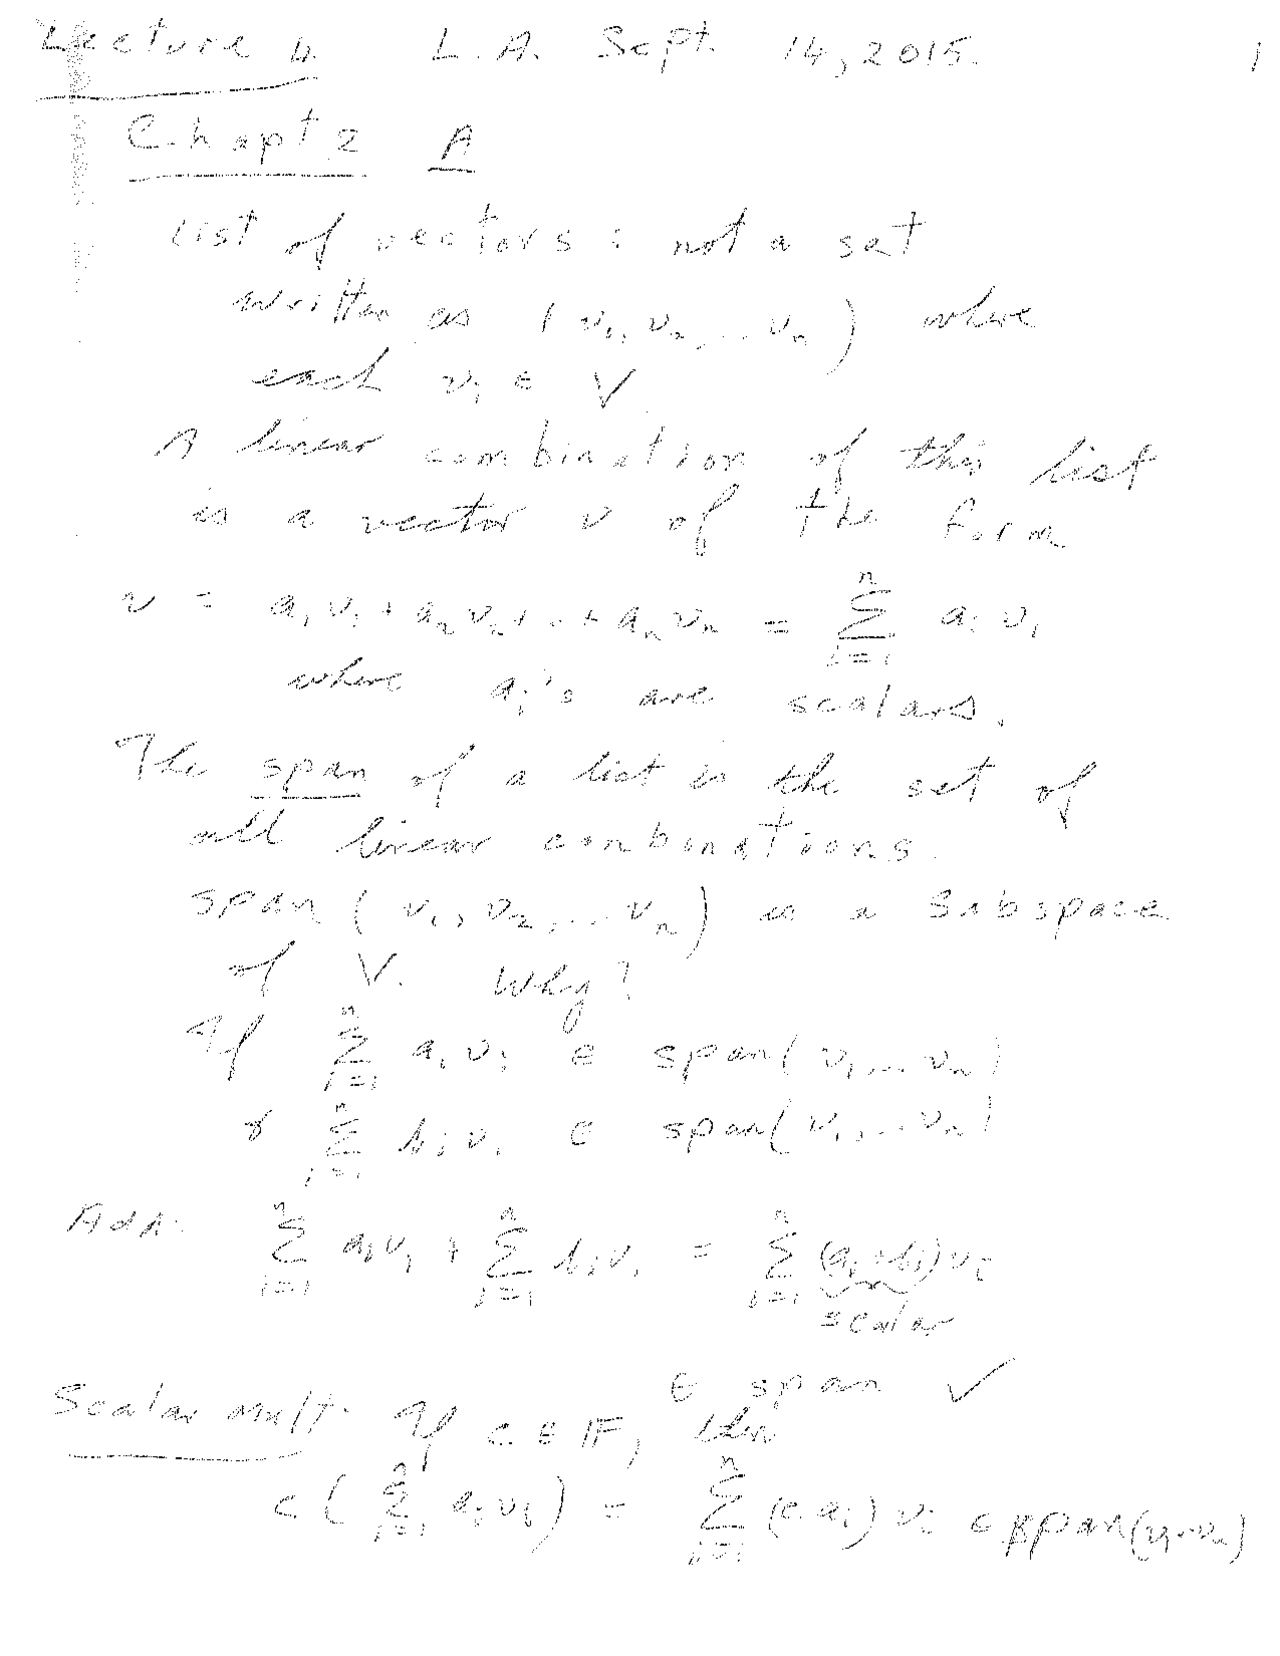 Lecture 4. L.A. Sept. 14, 2015. 1
Chapt 2 A
List of vectors : not a set
written as (v₁, v₂, ... vₙ) where
each vᵢ ∈ V
A linear combination of this list
is a vector v of the form
v = a₁v₁ + a₂v₂ + .. + aₙvₙ = ∑ⁿᵢ₌₁ aᵢvᵢ
where aᵢ's are scalars.
The span of a list is the set of
all linear combinations.
span (v₁, v₂, ... vₙ) is a subspace
of V. Why?
If ∑ⁿᵢ₌₁ aᵢvᵢ ∈ span(v₁, ... vₙ)
& ∑ⁿᵢ₌₁ bᵢvᵢ ∈ span(v₁, ... vₙ)
Add: ∑ⁿᵢ₌₁ aᵢvᵢ + ∑ⁿᵢ₌₁ bᵢvᵢ = ∑ⁿᵢ₌₁ (aᵢ+bᵢ)vᵢ
scalar
∈ span ✓
Scalar mult. If c ∈ F, then
c(∑ⁿᵢ₌₁ aᵢvᵢ) = ∑ⁿᵢ₌₁ (c aᵢ)vᵢ ∈ span(v₁...vₙ)